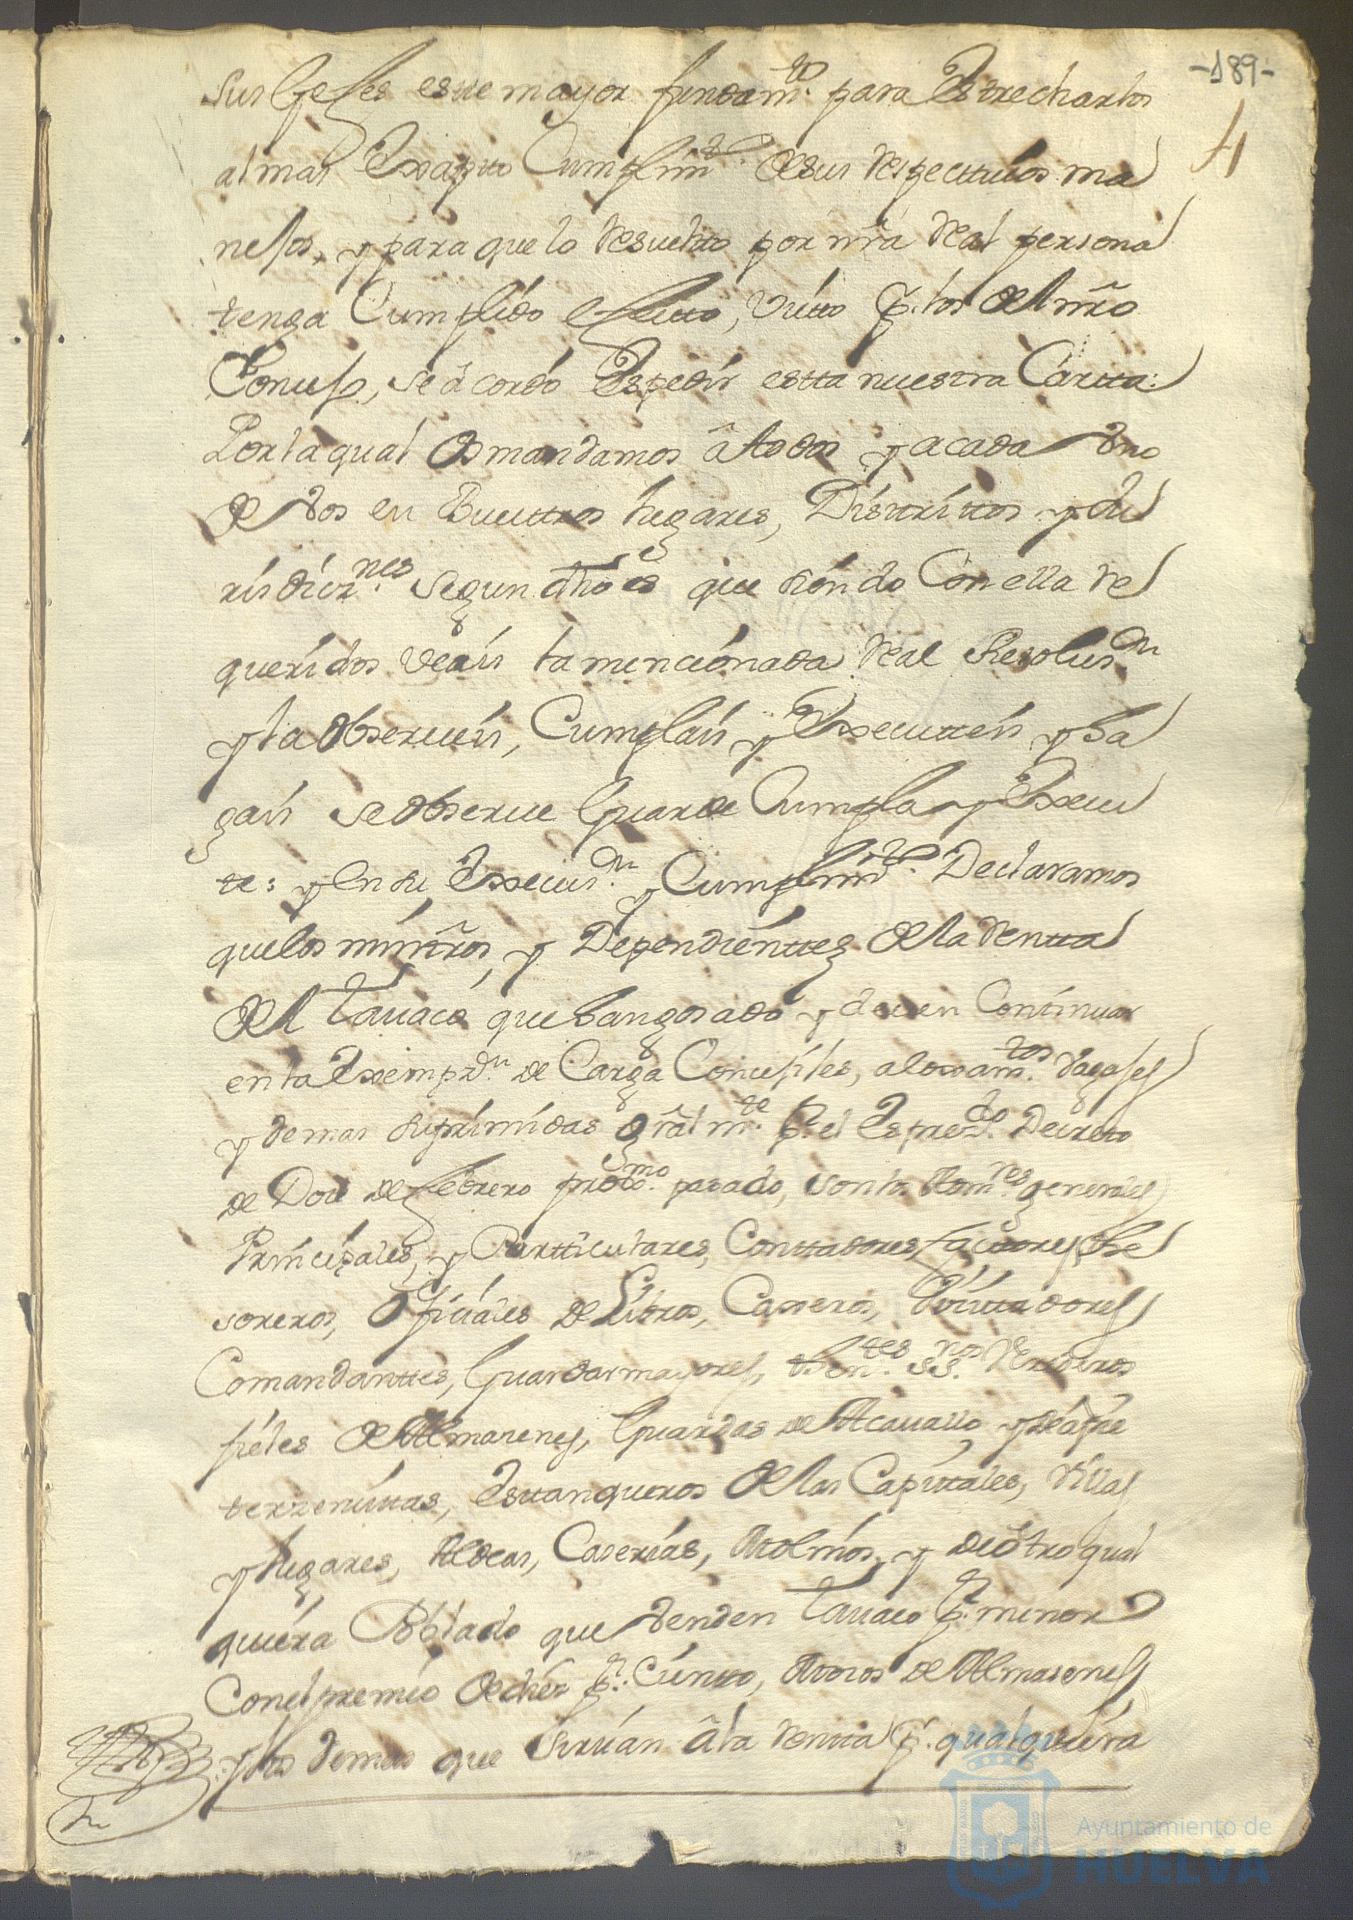 -189-
4
sus Gefes este mayor fundam.to para Estrecharlos
al mas Exapto Cumplim.to de sus respectivos ma
nejos, y para que lo resuelto por nra real persona
tenga Cumplido efecto, visto p.r los del nro
Consejo, se acordó Espedir esta nuestra Cartta:
Por la qual os mandamos â todos y a cada vno
de vos en vuestros lugares, Distritos y Ju
risdicz.nes segun dho es que siendo Con ella re
queridos veais la mencionada real Resoluz.on
y la observeis, Cumplais y Executteis y ha
gais se observe Guarde Cumpla y Execu
te: y en su Execuz.on y Cumplim.to Declaramos
que los minros, y Dependienttes de la renta
del Tavaco que han gosado y deven Continuar
en la Exempz.on de Carga Concejiles, aloxam.tos vagajes
y demas suprimidas gral m.te p.r el Espres.do Decreto
de Doce de febrero prox.mo pasado, son los Adm.res generales
Principales, y Partticulares, Conttadores, factores, the
soreros, Oficiales de Libros, Caxeros, Visitadores
Comandanttes, Guardas mayores, then.tes ss.nos Verederos
fieles de Almazenes, Guardas de Acavallo y de a pie
terzenistas, Esttanqueros de las Capitales, Villas
y lugares, Aldeas, Caserias, Molinos, y de otro qual
quiera Poblado que venden Tavaco p.r menor
Con el premio de diez p.r Ciento, Mozos de Almasenes
y los demas que sirvan â la rentta p.r qualquiera
Ayuntamiento de
HUELVA